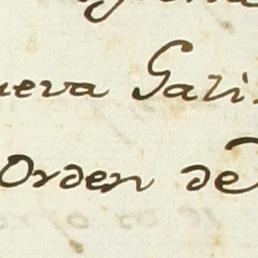 ueva Gali
Orden de